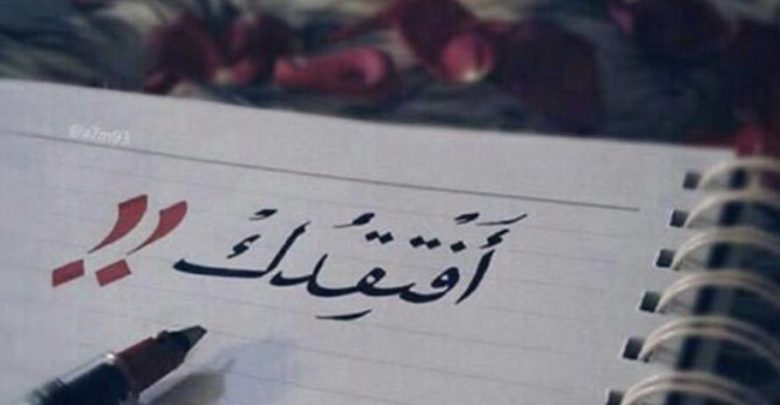 @a7m93
أَفْتَقِدُكْ !!